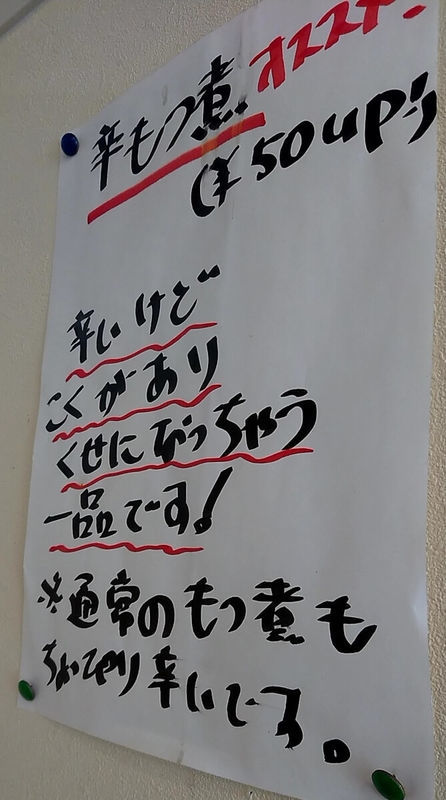 辛もつ煮 オススメ!
(¥50up!)
辛いけど
こくがあり
くせになっちゃう
一品です!
※通常のもつ煮も
ちょっぴり辛いです。